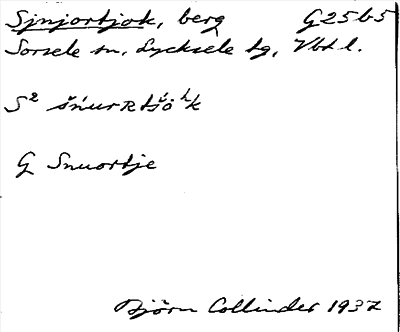 Sjnjortjok, berg G25b5
Sorsele sn, Lycksele lg, Vbtl.
S² šńurRtšöʰk
G Snuortje
Björn Collinder 1937